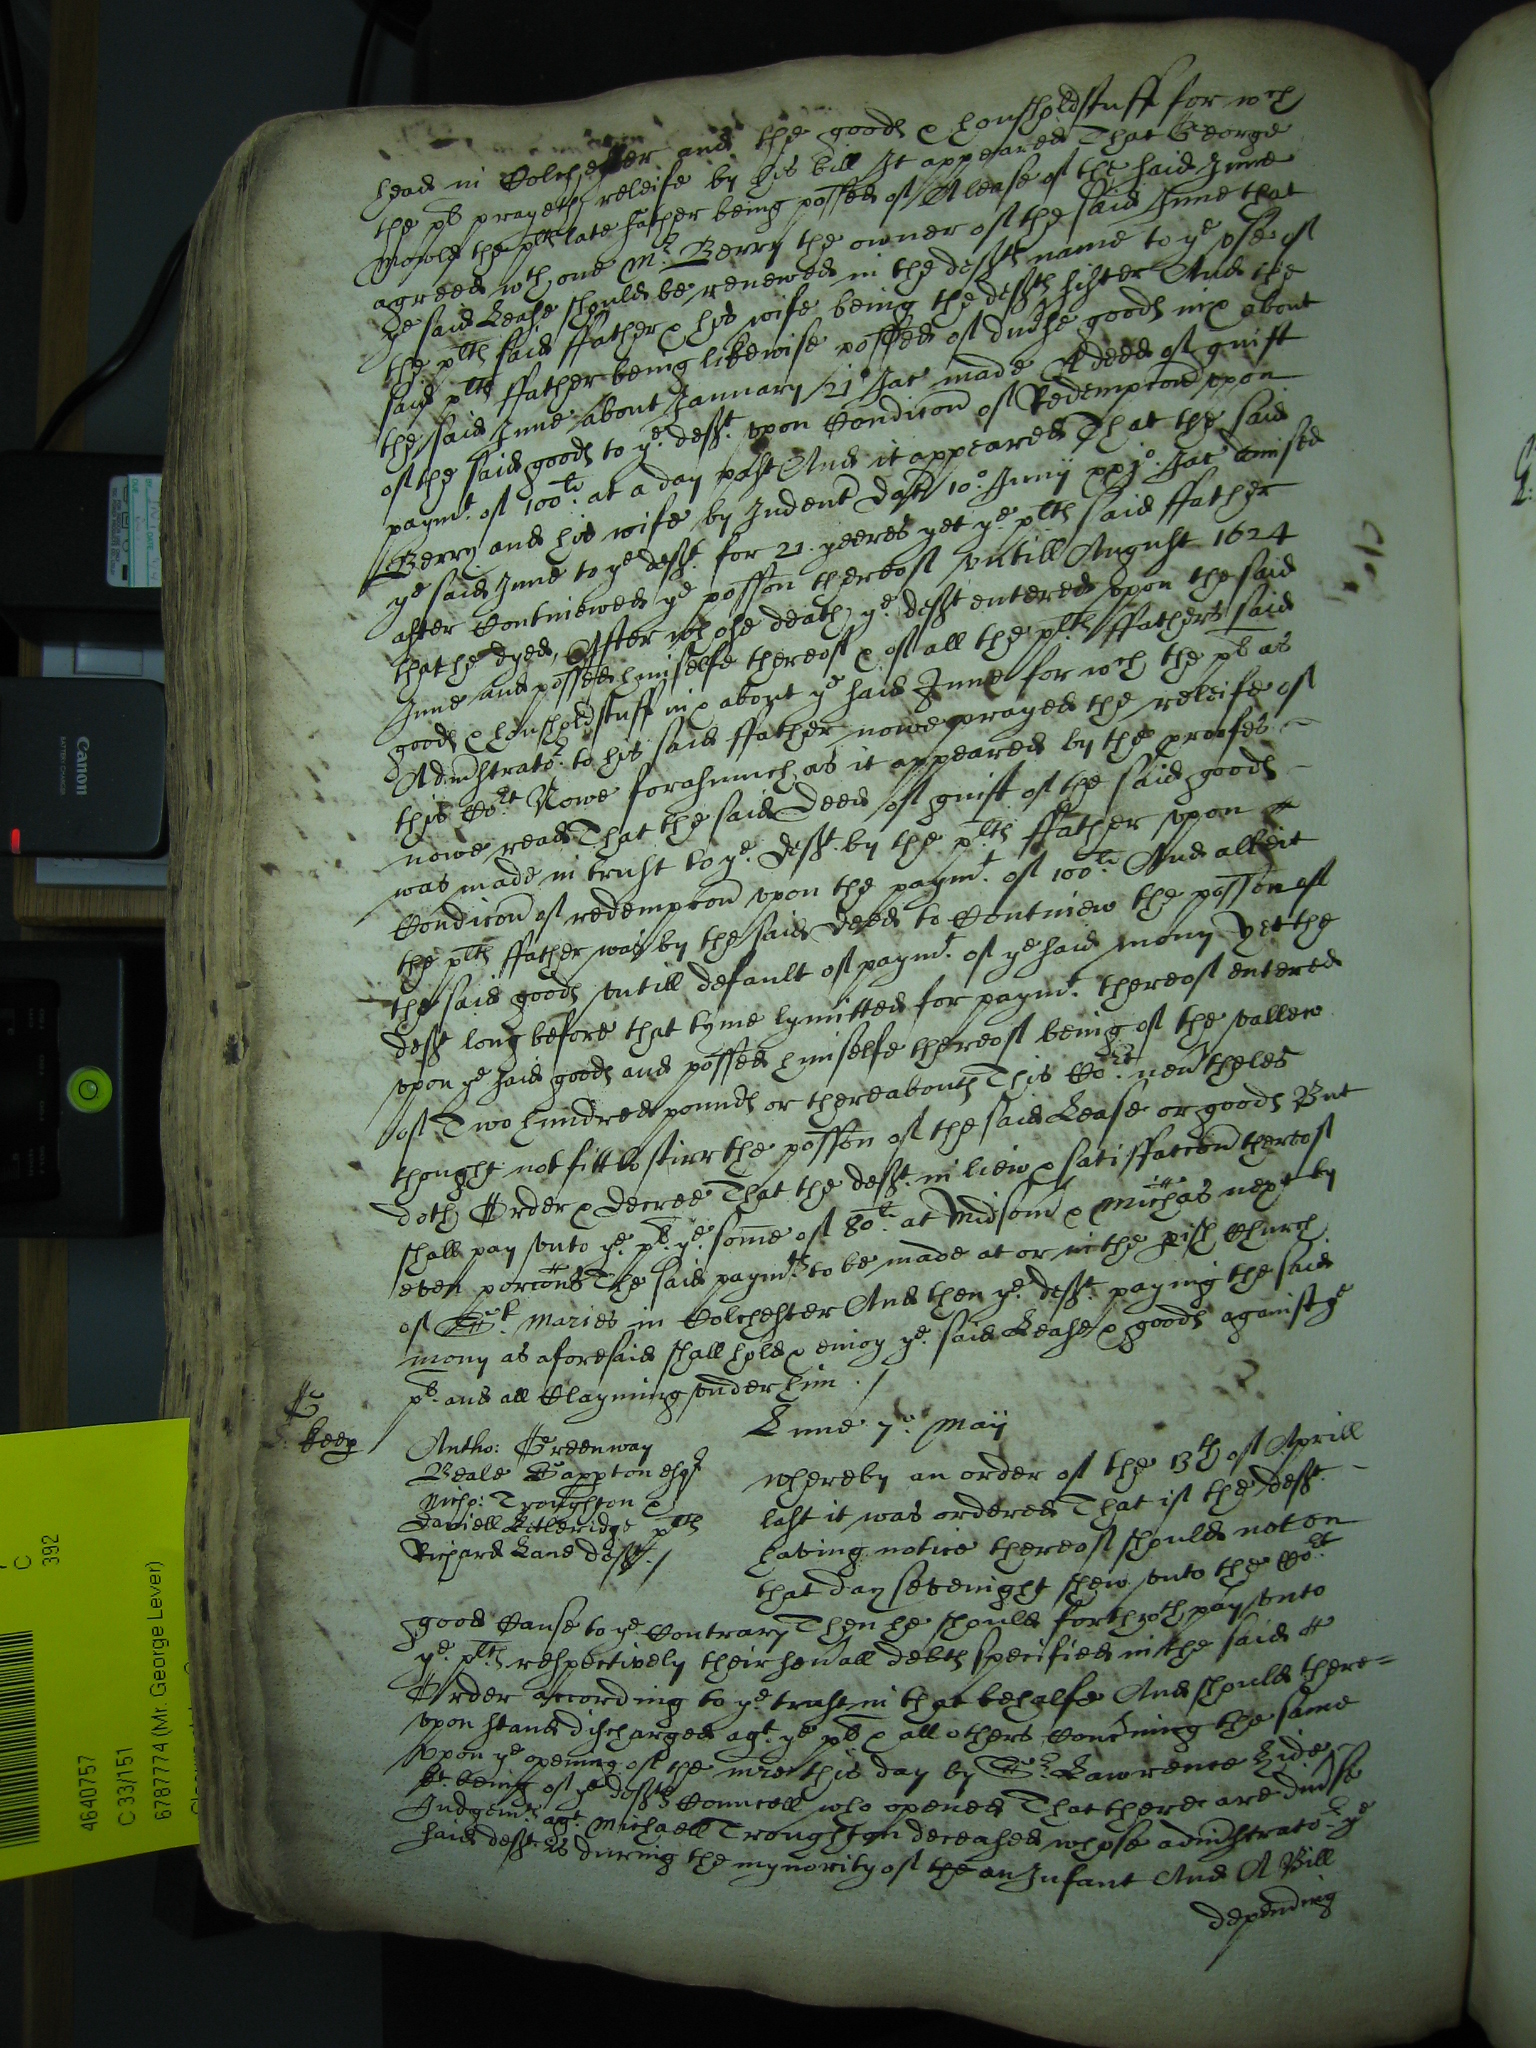 head in Colchester and the goods & houshold stuff for wch
the plt prayeth releife by his bill It appeared That George
the plts late father being possed of A lease of the said Inne
agreed wth one Mr. Berry the owner of the said Inne that
ye said Lease should be renewed in the defts name to ye use of
the plts said ffather & his wife being the defts sister And the
said plts ffather being likewise possed of divse goods in & about
the said Inne about January 21o Jac made A deed of guift
of the said goods to ye deft. upon Condicon of Redempcon upon
paymt. of 100li. at a day past And it appeared That the said
Berry and his wife by Indent Dat 10o Junij xxjo. Jac demised
ye said Inne to ye deft. for 21. yeeres yet ye. plts said ffather
after Continewed ye possion thereof untill August 1624
that he dyed, After whose death ye. deft entered upon the said
Inne and possed himselfe thereof & of all the plts ffathers said
goods & houshold stuff in & about ye said Inne for wch the plt as
Adminstrator. to his said ffather nowe prayed the releife of
this Cort Nowe forasmuch as it appeared by the proofes
nowe read That the said Deed of guift of the said goods
was made in trust to ye. Deft. by the plts ffather upon
Condicon of redempcon upon the paymt. of 100li. And albeit
the plts ffather was by the said Deed to Continew the possion of
the said goods untill default of paymt. of ye said mony Yet the
deft long before that tyme lymitted for paymt. thereof entered
upon ye said goods and possed himselfe thereof being of the vallew
of Two hundred pounds or thereabouts This Cort. nevtheles
thought not fitt to stirr the possion of the said Lease or goods But
doth Order & decree That the deft. in liew & satisfaccon thereof
shall pay unto ye. plt. ye. some of 80li. at Midsom & Michas next by
even porcons The said paymts. to be made at or in the pish Church
of St. Maries in Colchester And then ye. deft. paying the said
mony as aforesaid shall hold & enioy ye. said Lease & goods against ye
plt. and all Clayming under him. /
keep
Lune 7o. Maij
Antho: Greenway
Beale Sappton esqr
Nicho: Troughton &
Daniell Ketleridge plts
Richard Lane deft. /
Whereby an order of the 13th of Aprill
last it was ordered That if the deft.
having notice thereof should not on
that day sevenight shew unto the Cort
good Cause to ye Contrary Then he should forthwth pay unto
ye. plts respectively their sevall debts specified in the said
Order according to ye trust in that behalfe And should there=
upon stand discharged agt. ye plt & all others Concning the same
Upon ye opening of the mre this day by Sr. Lawrence Hide
kt being of ye defts Councell who opened That there are divse
Judgemts agt. Michaell Troughton deceased whose adminstrator ye
said deft. is during the mynority of the an Infant And A Bill
depending
Canon
BATTERY CHARGER
C
392
4640757
C 33/151
6787774 (Mr. George Lever)